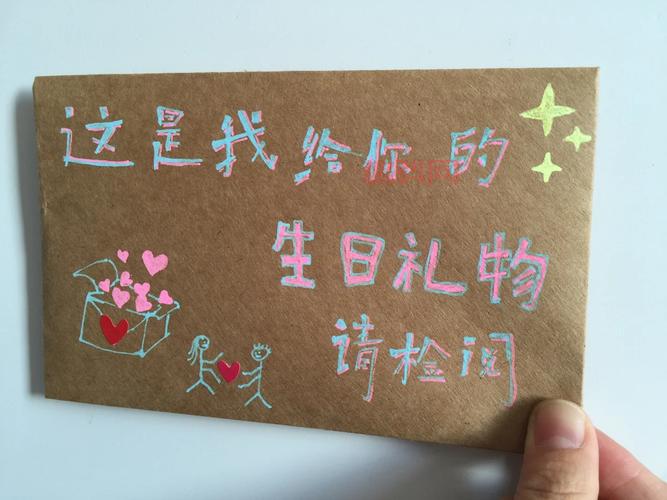 这是我给你的
生日礼物
请检阅